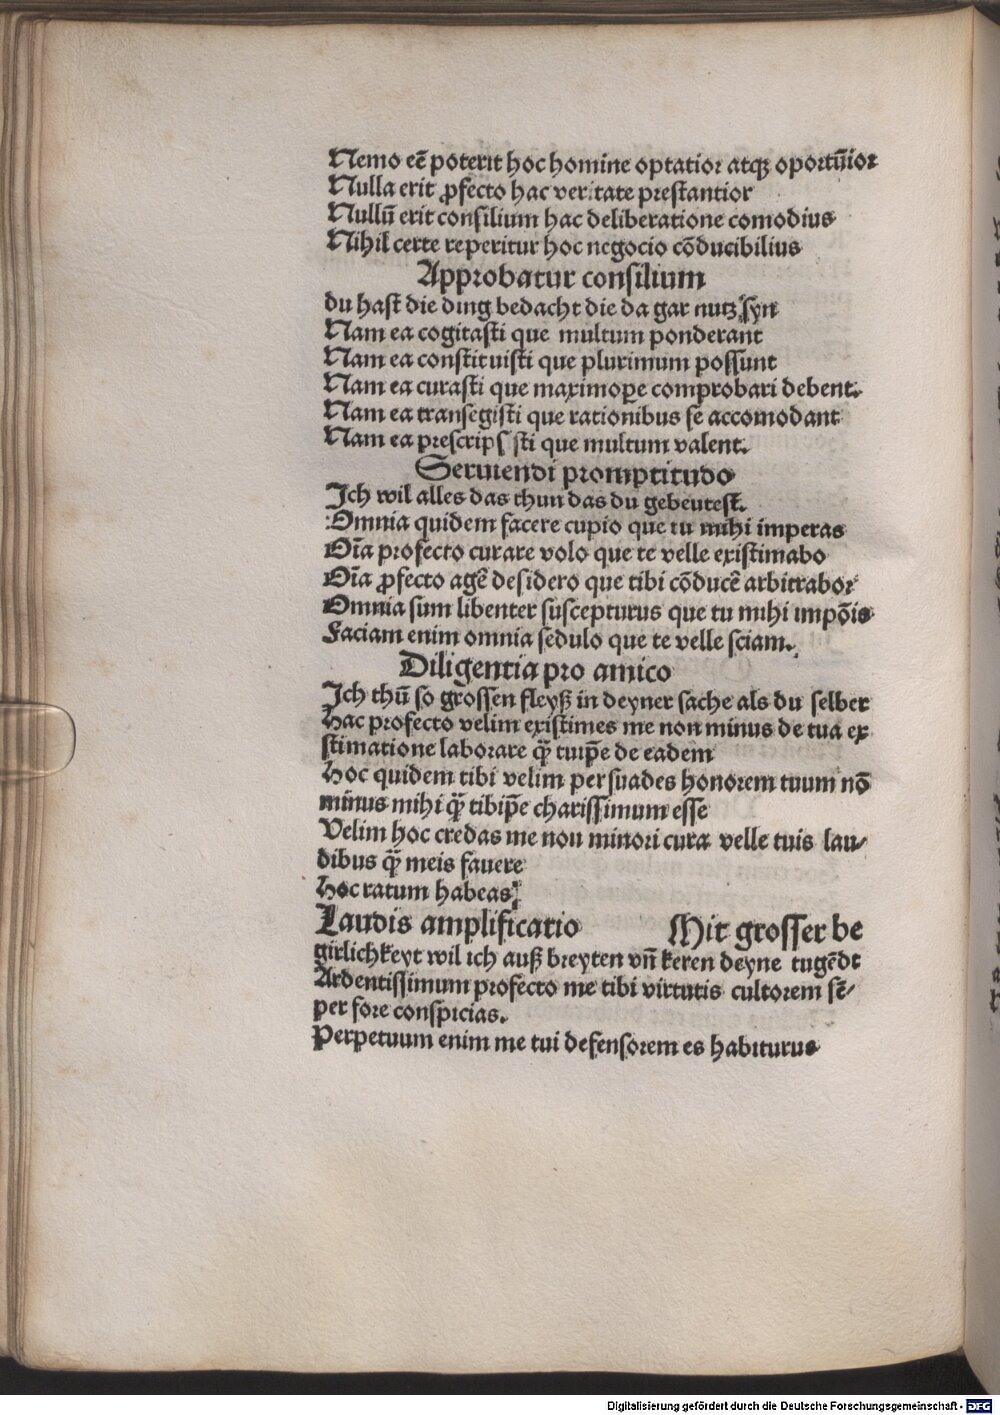 Nemo eē poterit hoc homine optatior atqꝫ oportūior
Nulla erit ꝓfecto hac veritate prestantior
Nullū erit consilium hac deliberatione comodius
Nihil certe reperitur hoc negocio cōducibilius
Approbatur consilium
du hast die ding bedacht die da gar nutz syn
Nam ea cogitasti que multum ponderant
Nam ea constituisti que plurimum possunt
Nam ea curasti que maximoꝑe comprobari debent.
Nam ea transegisti que rationibus se accomodant
Nam ea prescrips sti que multum valent.
Seruiendi promptitudo
Ich wil alles das thun das du gebeutest.
Omnia quidem facere cupio que tu mihi imperas
Oīa profecto curare volo que te velle existimabo
Oīa ꝓfecto agē desidero que tibi cōducē arbitrabor
Omnia sum libenter suscepturus que tu mihi impōis
Faciam enim omnia sedulo que te velle sciam.
Diligentia pro amico
Ich thū so grossen fleyß in deyner sache als du selber
Hac profecto velim existimes me non minus de tua ex
stimatione laborare q̄ꝫ tuip̄e de eadem
Hoc quidem tibi velim persuades honorem tuum nō
minus mihi q̄ꝫ tibip̄e charissimum esse
Velim hoc credas me non minori cura velle tuis lau⸗
dibus q̄ꝫ meis fauere
Hoc ratum habeas
Laudis amplificatio Mit grosser be
girlichkeyt wil ich auß breyten vn̄ keren deyne tugēdt
Ardentissimum profecto me tibi virtutis cultorem sē⸗
per fore conspicias.
Perpetuum enim me tui defensorem es habiturus
Digitalisierung gefördert durch die Deutsche Forschungsgemeinschaft - DFG